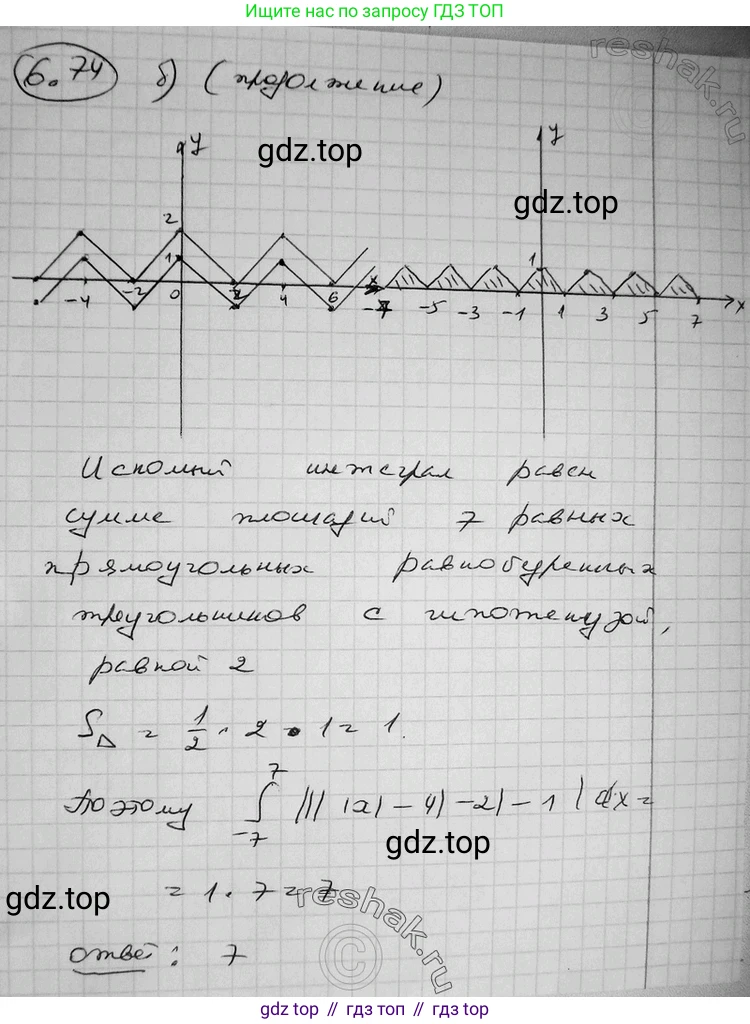 Ищите нас по запросу ГДЗ ТОП
6.74 б) (продолжение)
reshak.ru
y
y
gdz.top
gdz.top
2
1
1
-4 -2 0 2 4 6 x
-7 -5 -3 -1 1 3 5 7 x
Искомый интеграл равен
сумме площадей 7 равных
прямоугольных равнобедренных
треугольников с гипотенузой,
равной 2
S△ = 1/2 · 2 · 1 = 1.
Поэтому ∫_{-7}^{7} ||||x| - 4| - 2| - 1| dx =
gdz.top
gdz.top
= 1 · 7 = 7
reshak.ru
©
ответ: 7
gdz top // гдз топ // гдз top